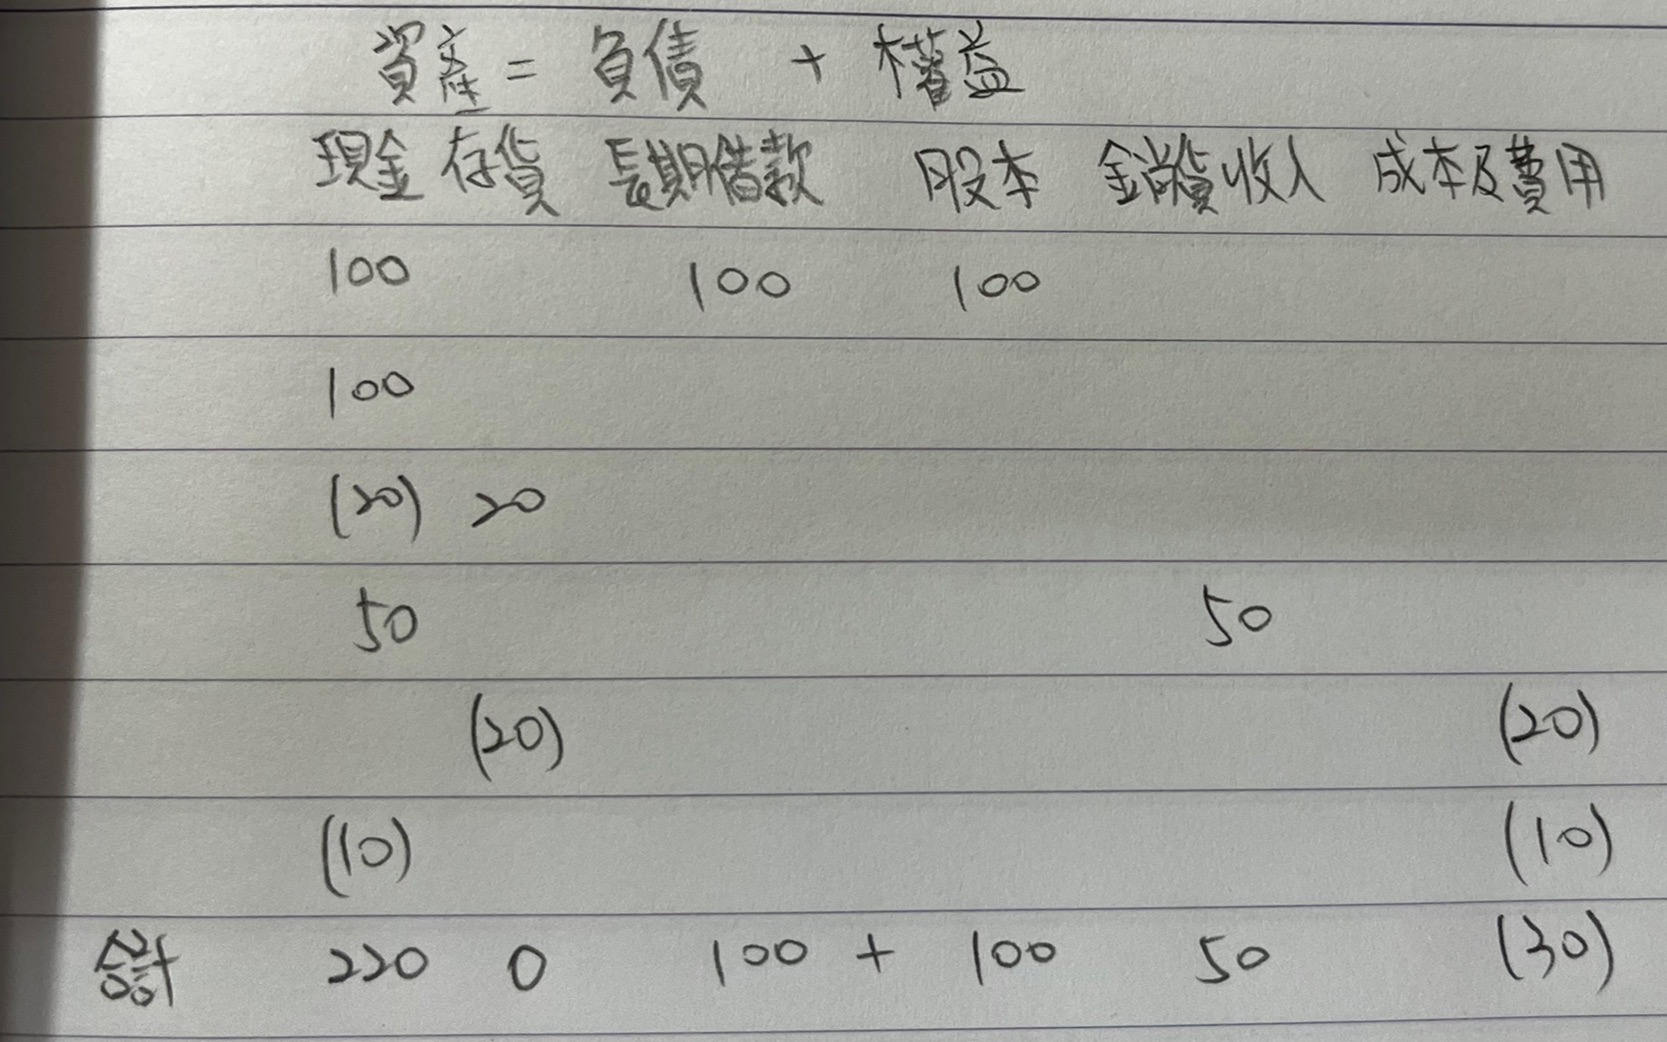 資產 = 負債 + 權益
現金 存貨 長期借款 股本 銷貨收入 成本及費用
100 100 100
100
(20) 20
50 50
(20) (20)
(10) (10)
合計 220 0 100 + 100 50 (30)